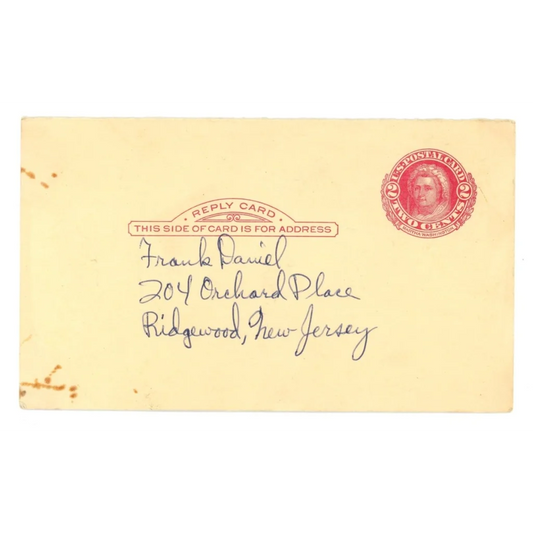 U.S. POSTAL CARD
2 TWO CENTS 2
REPLY CARD
THIS SIDE OF CARD IS FOR ADDRESS
Frank Daniel
204 Orchard Place
Ridgewood, New Jersey